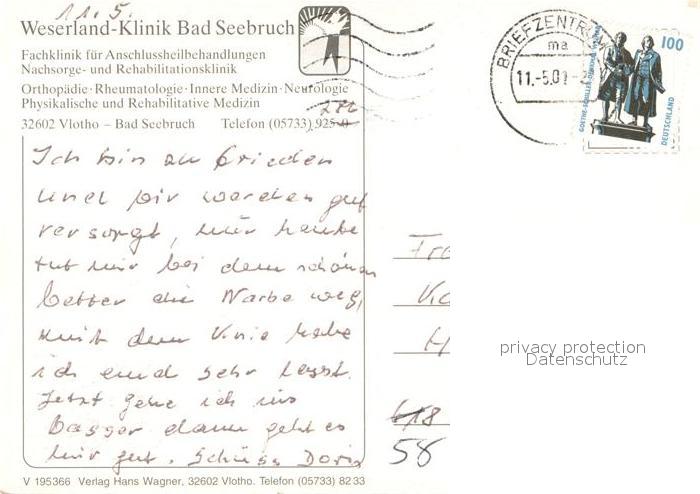 11.5.
Weserland-Klinik Bad Seebruch
Fachklinik für Anschlussheilbehandlungen
Nachsorge- und Rehabilitationsklinik
Orthopädie·Rheumatologie·Innere Medizin·Neurologie
Physikalische und Rehabilitative Medizin
32602 Vlotho – Bad Seebruch Telefon (05733) 925-0
Ich bin zu frieden
und wir werden gut
versorgt, nur heute
tut mir bei dem schönen
Wetter die Narbe weh,
mit dem Knie habe
ich
Jetzt gehe ich ins
Wasser dann geht es
mir gut. Schüss Doris
V 195366 Verlag Hans Wagner, 32602 Vlotho. Telefon (05733) 82 33
BRIEFZENTRUM
ma
11.-5.01
GOETHE-SCHILLER-DENKMAL WEIMAR
100
DEUTSCHLAND
Fra
58
privacy protection
Datenschutz